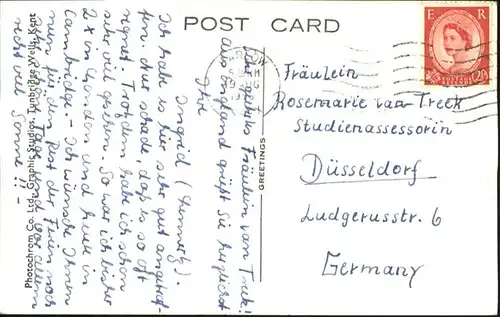 POST CARD
Sehr geehrtes Fräulein van Treek!
Aus England grüßt Sie herzlichst
Ihre
Ingrid
Ich habe es hier sehr gut angetrof-
fen. Nur schade, daß es so oft
regnet. Trotzdem habe ich schon
sehr viel gesehen. So war ich bisher
2x in London und heute in
Cambridge. - Ich wünsche Ihnen
nun für den Rest der Ferien noch
recht viel Sonne!!
Photochrom Co. Ltd., Graphic Studios, Tunbridge Wells, Kent
GREETINGS
E R
2½
Fräulein
Rosemarie van Treek
Studienassessorin
Düsseldorf
Ludgerusstr. 6
Germany